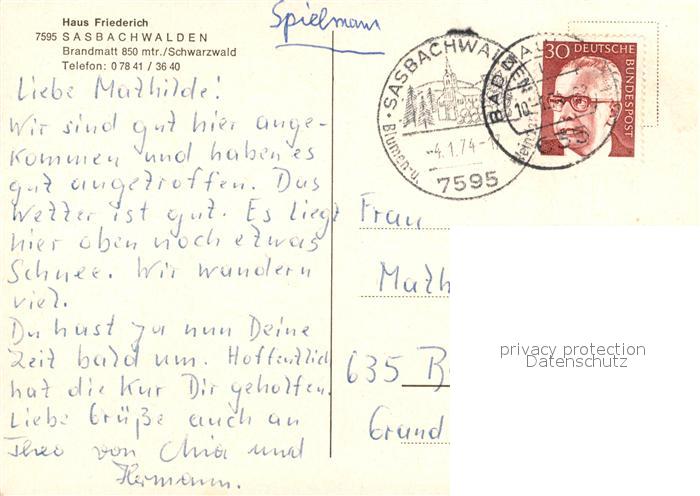 Haus Friederich
7595 SASBACHWALDEN
Brandmatt 850 mtr./Schwarzwald
Telefon: 0 78 41 / 36 40
Spielmann
Liebe Mathilde!
Wir sind gut hier ange-
kommen und haben es
gut angetroffen. Das
Wetter ist gut. Es liegt
hier oben noch etwas
Schnee. Wir wandern
viel.
Du hast ja nun Deine
Zeit bald um. Hoffentlich
hat die Kur Dir geholfen.
Liebe Grüße auch an
Theo von Chia und
Hermann.
SASBACHWAL
Blumen-u.
-4.1.74-1
7595
BAD NAU
30 DEUTSCHE
BUNDESPOST
Frau
Math
635 B
Grund
privacy protection
Datenschutz